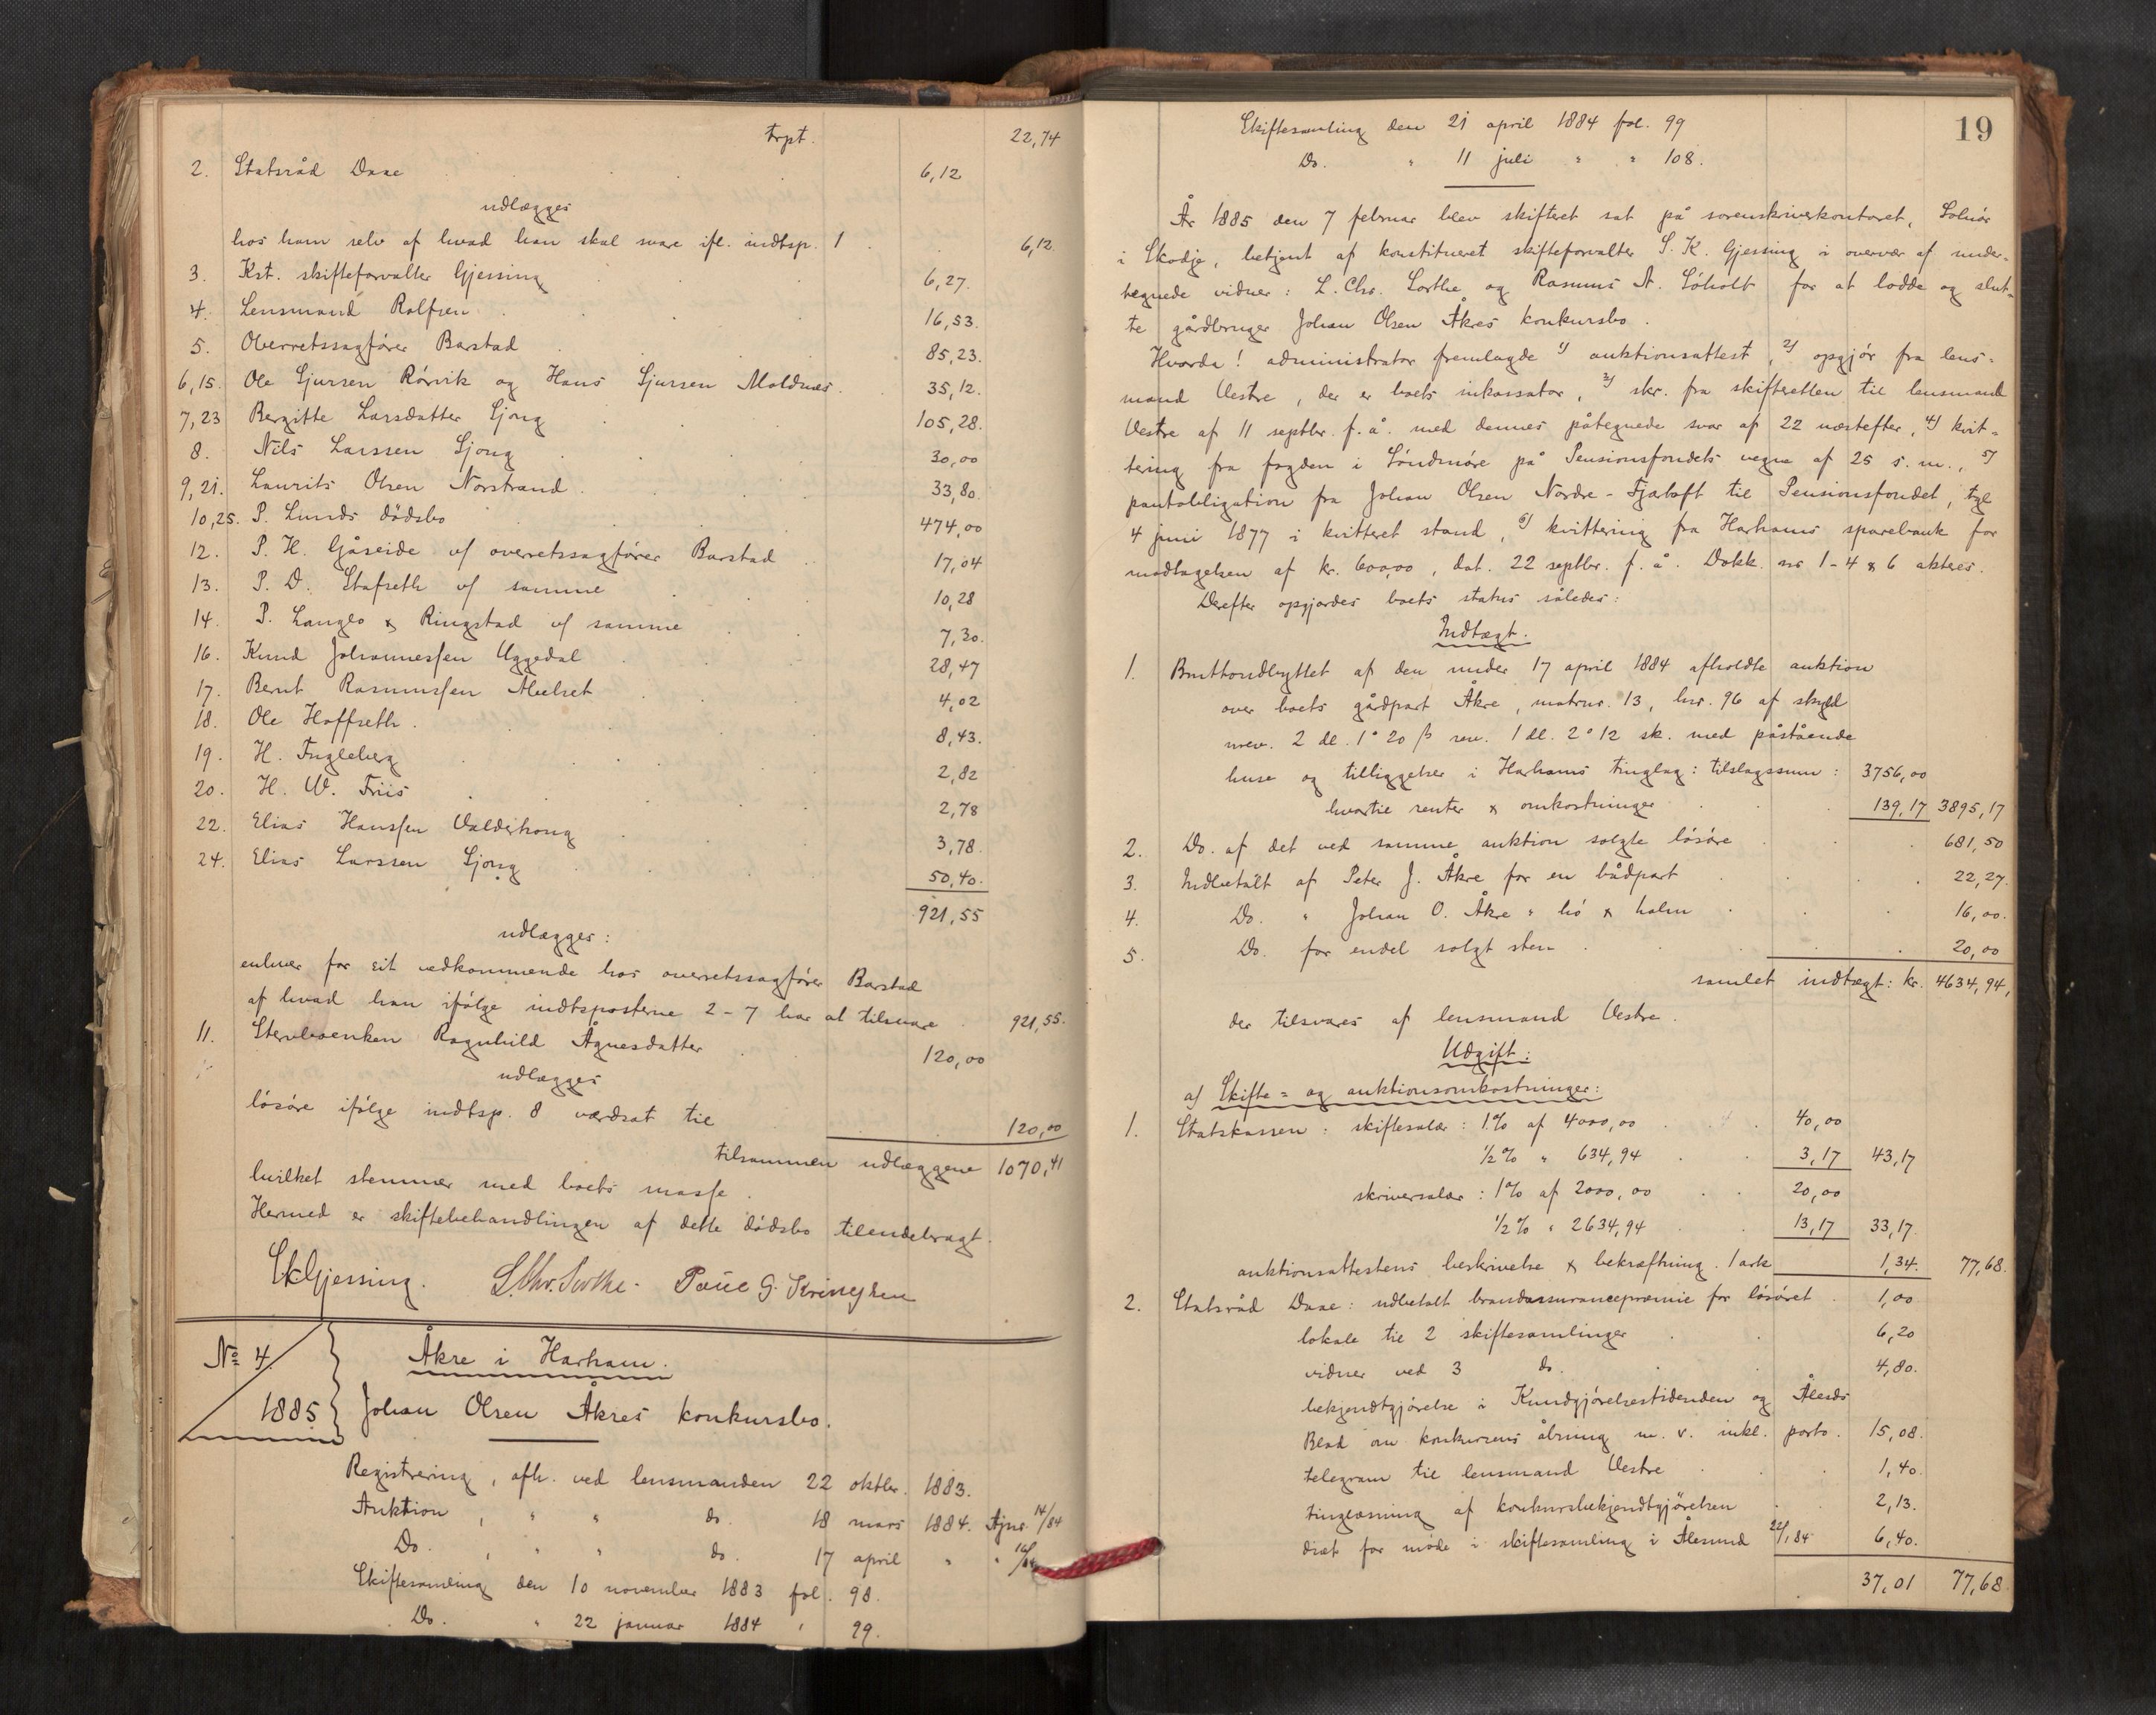 trpt. 22,74
2. Statsråd Daae 6,12
udlægges
hos ham selv af hvad han skal svare ifl. indtsp. 1 6,12.
3. Kst. skifteforvalter Gjessing 6,27.
4. Lensmand Rolfsen 16,53.
5. Overretssagfører Barstad 85,23.
6,15. Ole Sjursen Rörvik og Hans Sjursen Moldnæs. 35,12.
7,23 Bergitte Larsdatter Ljong 105,28.
8. Nils Larssen Ljong 30,00
9,21. Laurits Olsen Norstrand 33,80.
10,25. P. Lunds dödsbo 474,00
12. P. H. Gåseide v/ overretssagfører Barstad 17,04
13. P. D. Stafseth v/ samme 10,28
14. P. Langlo & Ringstad v/ samme 7,30.
16. Knud Johannessen Uggedal 28,47
17. Bernt Rasmussen Abelset 4,02
18. Ole Hoffseth. 8,43.
19. H. Engleberg 2,82
20. H. W. Friis 2,78
22. Elias Hanssen Valderhoug 3,78.
24. Elias Larssen Ljong 50,40.
921,55
udlægges:
enhver for sit vedkommende hos overretssagfører Barstad
af hvad han ifölge indtsposterne 2-7 har at tilsvare 921,55.
11. Stervboenken Ragnhild Ågnesdatter 120,00
udlægges
lösöre ifölge indtsp. 8 værdsat til 120,00
tilsammen udlæggene 1070,41
hvilket stemmer med boets masse.
Hermed er skiftebehandlingen af dette dödsbo tilendebragt.
SKGjessing. L.Chr. Sorthe. Paul G. Kringsken
No 4 Åkre i Harham.
1885 Johan Olsen Åkres konkursbo.
Registrering, afh. ved lensmanden 22 oktbr. 1883.
Auktion, " " do. 18 mars 1884. Ajnr. 14/84
Do. , " " do. 17 april " " 16/84
Skiftesamling den 10 november 1883 fol. 98.
Do. " 22 januar 1884 " 99.
19
Skiftesamling den 21 april 1884 fol. 99
Do. " 11 juli " " 108.
År 1885 den 7 februar blev skifteret sat på sorenskriverkontoret, Solnör
i Skodje, betjent af konstitueret skifteforvalter S. K. Gjessing i overvær af under-
tegnede vidner: L. Chr. Sorthe og Rasmus A. Söholt for at lodde og slut-
te gårdbruger Johan Olsen Åkres konkursbo.
Hvorda! administrator fremlagde 1) auktionsattest, 2) opgjör fra lens-
mand Vestre, der er boets inkassator, 3) skr. fra skifteretten til lensmand
Vestre af 11 septbr. f. å. med dennes påtegnede svar af 22 næstefter, 4) kvit-
tering fra fogden i Söndmöre på Pensionsfondets vegne af 25 s. m., 5)
pantobligation fra Johan Olsen Nordre-Fjærtoft til Pensionsfondet, tgl.
4 juni 1877 i kvitteret stand, 6) kvittering fra Harhams sparebank for
modtagelsen af kr. 600,00, dat. 22 septbr. f. å. Dokk. nr 1-4 & 6 akteres.
Derefter opgjordes boets status således:
Indtægt.
1. Bruttoudbyttet af den under 17 april 1884 afholdte auktion
over boets gårdpart Åkre, matrnr. 13, lnr. 96 af skyld
urev. 2 dl. 1 ° 20 ß rev. 1 dl. 2 ° 12 sk. med påstående
huse og tilliggelser i Harhams tinglag: tilslagssum: 3756,00
hvortil renter & omkostninger 139,17 3895,17
2. Do. af det ved samme auktion solgte lösöre 681,50
3. Indbetalt af Peter J. Åkre for en bådpart 22,27.
4. Do. " Johan O. Åkre " hö & halm 16,00.
5. Do. for endel solgt sten 20,00
samlet indtægt: kr. 4634,94,
der tilsvares af lensmand Vestre.
Udgift:
a) Skifte- og auktionsomkostninger:
1. Statskassen: skiftesalær: 1% af 4000,00 40,00
1/2 % " 634,94 3,17 43,17
skriversalær: 1% af 2000,00 20,00
1/2 % " 2634,94 13,17 33,17
auktionsattestens beskrivelse & bekræftning. 1 ark 1,34. 77,68.
2. Statsråd Daae: udbetalt brandassurancepræmie for lösöret 1,00
lokale til 2 skiftesamlinger 6,20
vidner ved 3 do. 4,80.
bekjendtgjörelse i Kundgjörelsestidenden og Ålesds
Blad om konkursens åbning m. v. inkl. porto. 15,08.
telegram til lensmand Vestre 1,40.
tinglæsning af konkursbekjendtgjörelsen 2,13.
diæt for möde i skiftesamling i Ålesund 22/1 84 6,40.
37,01 77,68